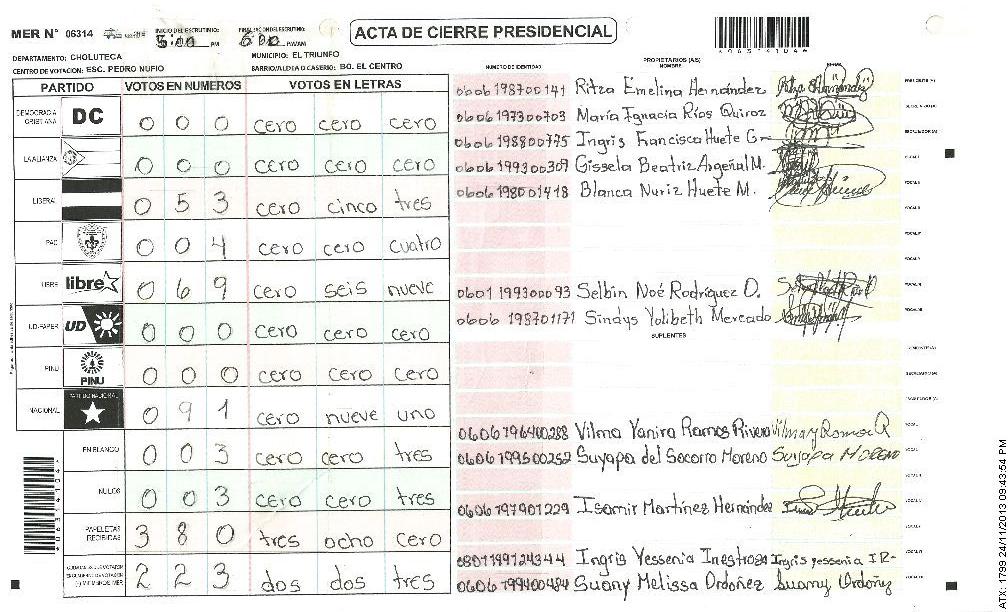 MER N° 06314
INICIO DEL ESCRUTINIO: 5:00 PM
FINALIZACION DEL ESCRUTINIO: 6:00 PM/AM
ACTA DE CIERRE PRESIDENCIAL
DEPARTAMENTO: CHOLUTECA
MUNICIPIO: EL TRIUNFO
CENTRO DE VOTACION: ESC. PEDRO NUFIO
BARRIO/ALDEA O CASERIO: BO. EL CENTRO
PARTIDO VOTOS EN NUMEROS VOTOS EN LETRAS
DEMOCRACIA CRISTIANA DC 0 0 0 cero cero cero
LA ALIANZA 0 0 0 cero cero cero
LIBERAL 0 5 3 cero cinco tres
PAC 0 0 4 cero cero cuatro
LIBRE libre 0 6 9 cero seis nueve
UD-FAPER UD 0 0 0 cero cero cero
PINU PINU 0 0 0 cero cero cero
NACIONAL PARTIDO NACIONAL 0 9 1 cero nueve uno
EN BLANCO 0 0 3 cero cero tres
NULOS 0 0 3 cero cero tres
PAPELETAS RECIBIDAS 3 8 0 tres ocho cero
2 2 3 dos dos tres
NUMERO DE IDENTIDAD
PROPIETARIOS (AS)
NOMBRE
FIRMA
0606198700141 Ritza Emelina Hernández
0606197300703 María Ignacia Ríos Quiroz
0606198800775 Ingris Francisca Huete G
0606199300309 Gissela Beatriz Argeñal M.
0606198001418 Blanca Nuriz Huete M.
0601199300093 Selbin Noé Rodríguez O.
0606198701171 Sindys Yolibeth Mercado
SUPLENTES
0606196400288 Vilma Yanira Ramos Rivera
0606199500252 Suyapa del Socorro Moreno Suyapa Moreno
0606197901229 Isamir Martínez Hernández
0801199124344 Ingris Yessenia Inestroza Ingris yessenia
0606199400484 Suany Melissa Ordoñez Suany Ordoñz
ATX: 1799 24/11/2013 09:43:54 PM